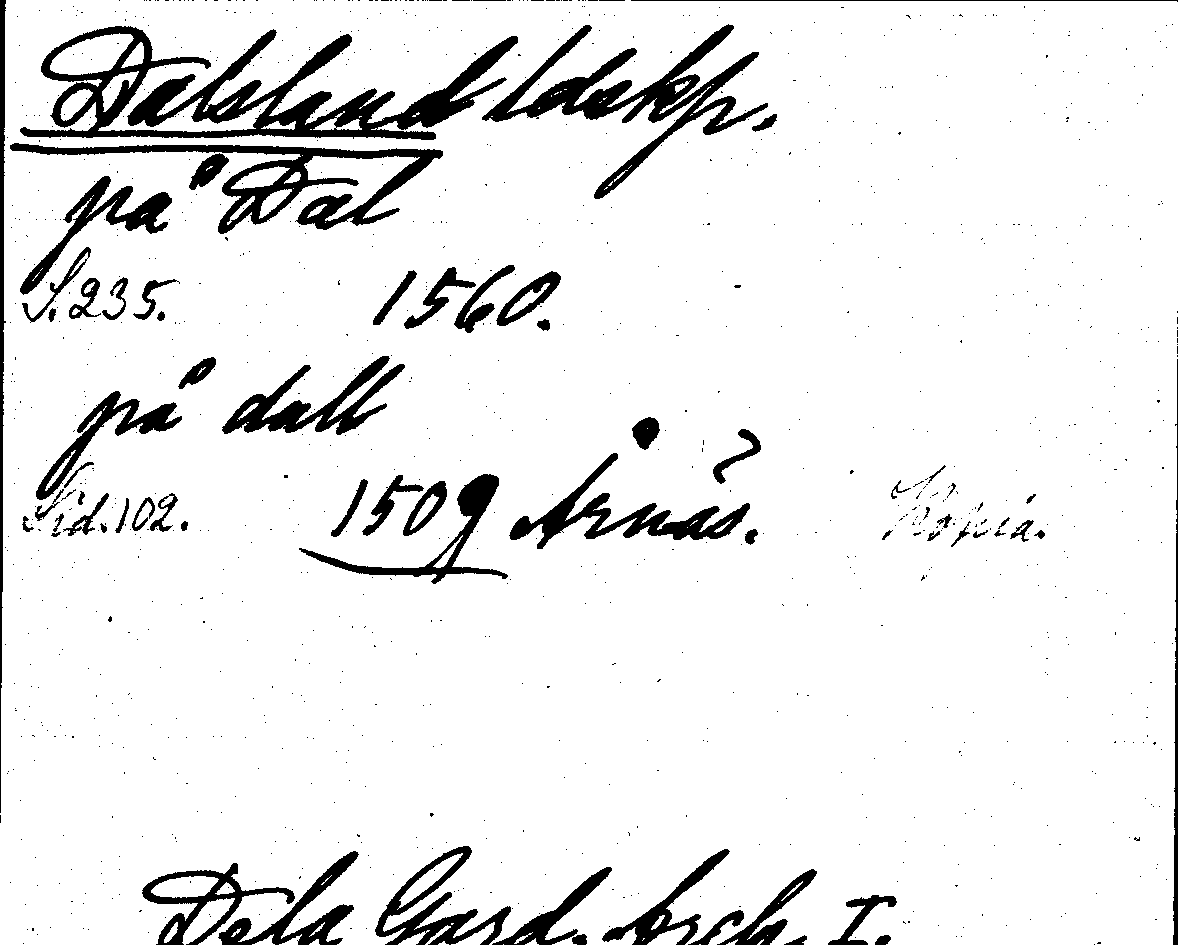 Dalsland ldskp.
på Dal
S. 235. 1560.
på dall
Sid. 102. 1509 Årnäs. Kopia.
Dela Gard. Arch. I.